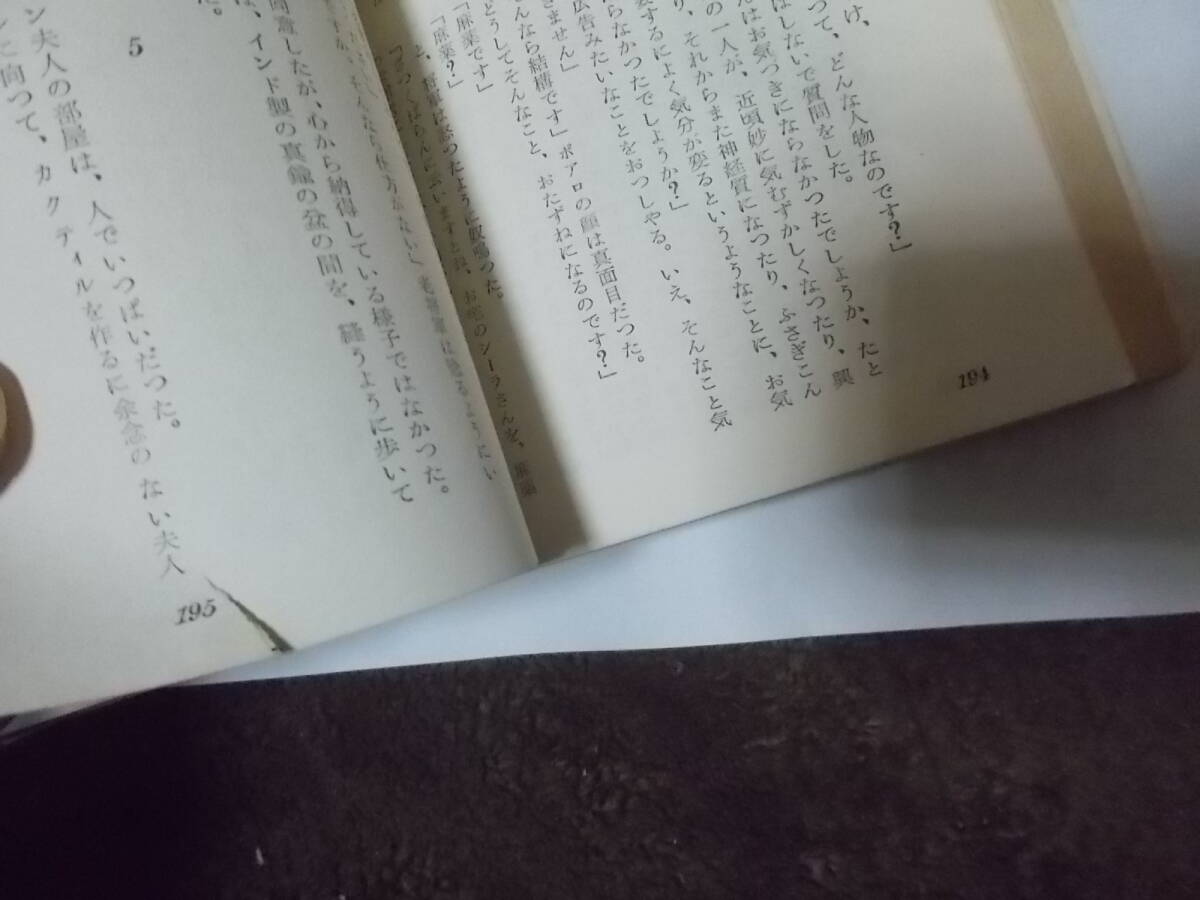 け、
つて、どんな人物なのです？」
はしないで質問をした。
お気つきにならなかつたでしようか、たと
の一人が、近頃妙に気むずかしくなつたり、ふさぎこん
り、それからまた神経質になつたり、興
要するによく気分が変るというようなことに、お気
らなかつたでしようか？」
広告みたいなことをおつしやる。いえ、そんなこと気
きません」
んなら結構です」ポアロの顔は真面目だつた。
どうしてそんなこと、おたずねになるのです？」
「麻薬です」
「麻薬？」
と、将軍は怒つたように呶鳴つた。
お宅のシーラさんを、麻薬
194
心から納得している様子ではなかつた。
インド製の真鍮の盆の間を、縫うように歩いて
た。
5
ン夫人の部屋は、人でいつぱいだつた。
に向つて、カクテイルを作るに余念のない夫人
195